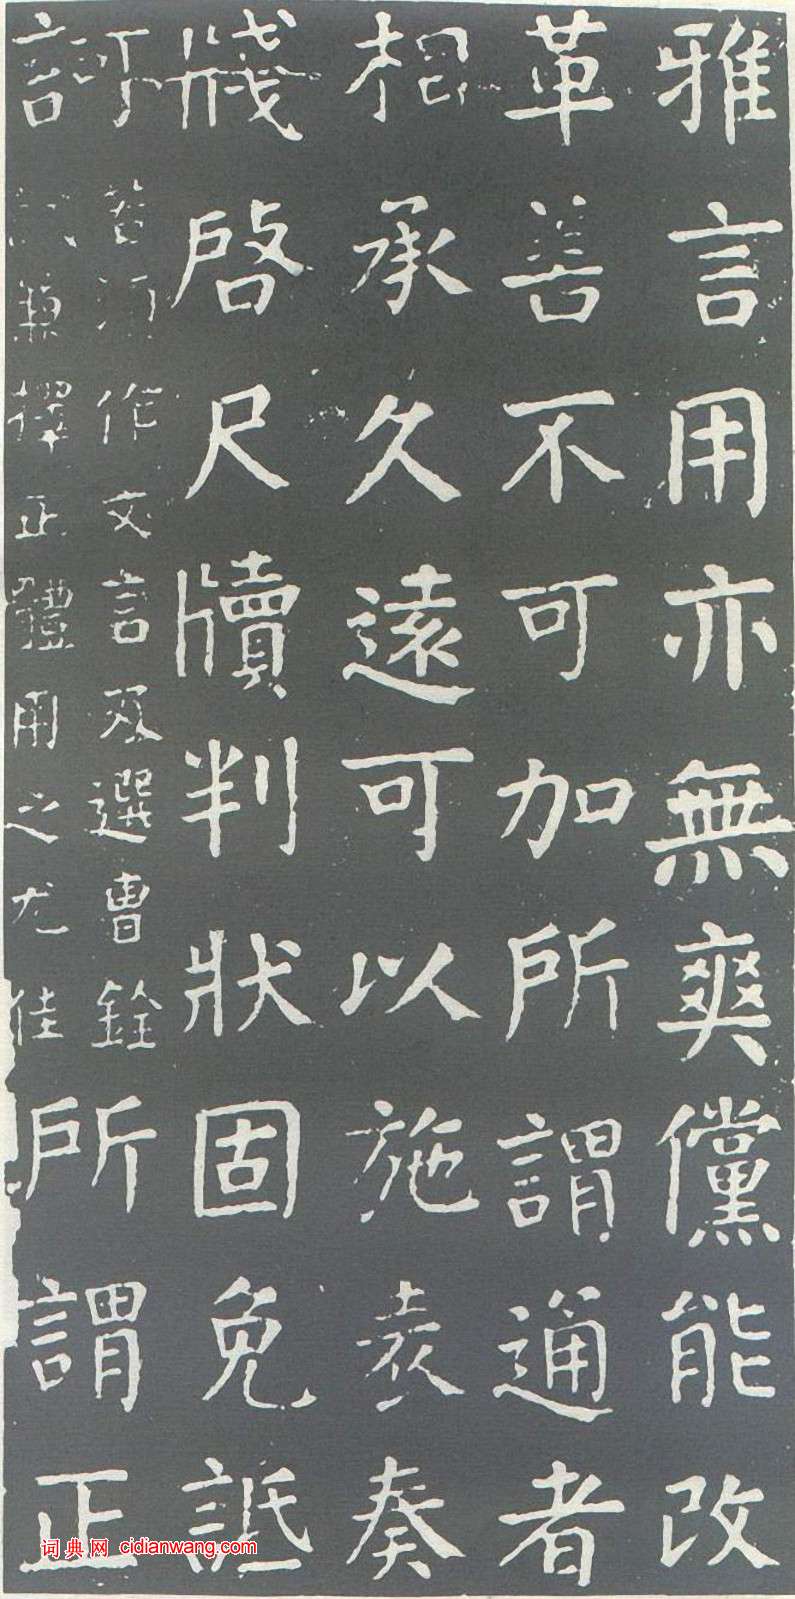 雅言用亦無爽儻能改
革善不可加所謂通者
相承久遠可以施表奏
牋啓尺牘判狀固免詆
訶
若須作文言及選曹銓
試兼擇正體用之尤佳
所謂正
词典网 cidianwang.com